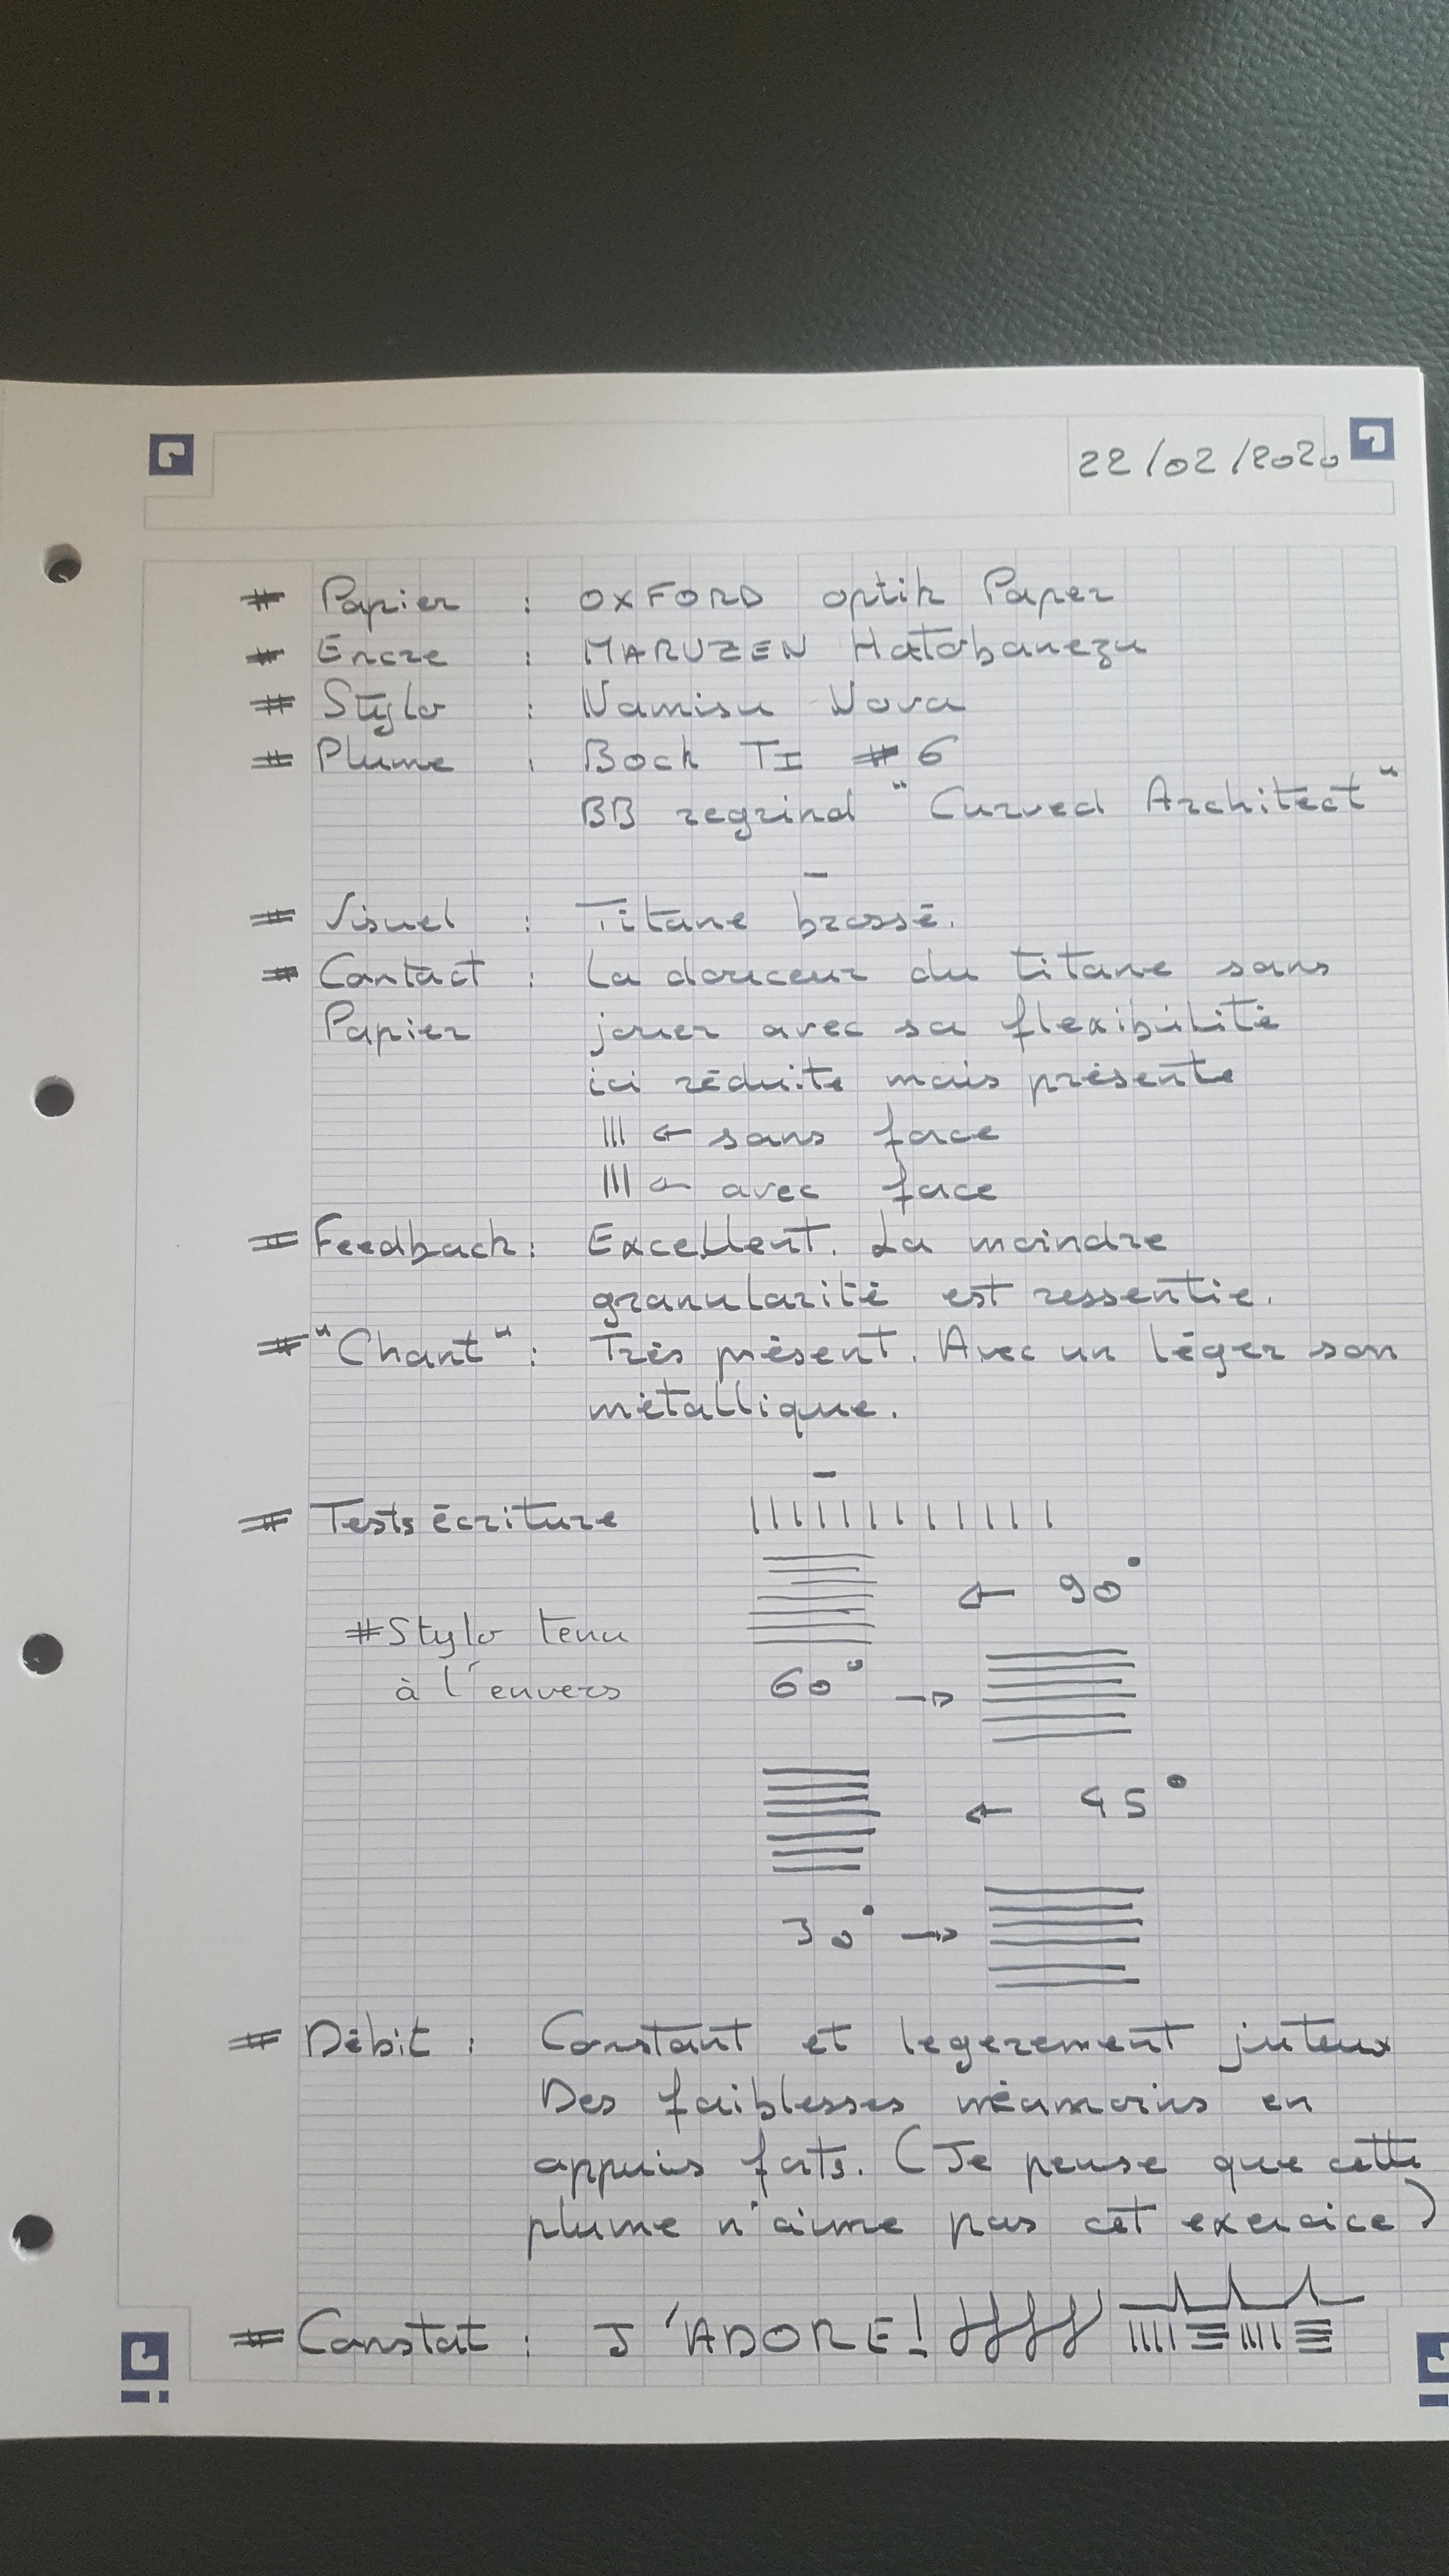 22/02/2020
# Papier : OXFORD optik Paper
# Encre : MARUZEN Hatobanezu
# Stylo : Namisu Nova
# Plume : Bock TI #6
BB regrind "Curved Architect"
-
# Visuel : Titane brossé.
# Contact : La douceur du titane sans
Papier jouer avec sa flexibilité
ici réduite mais présente
||| ← sans force
||| ← avec force
# Feedback : Excellent. La moindre
granularité est ressentie.
# "Chant" : Très présent. Avec un léger son
métallique.
-
# Tests écriture
← 90°
# Stylo tenu
à l'envers 60° →
← 45°
30° →
# Débit : Constant et legerement juteux
Des faiblesses néamoins en
appuis forts. (Je pense que cette
plume n'aime pas cet exercice)
# Constat : J'ADORE !